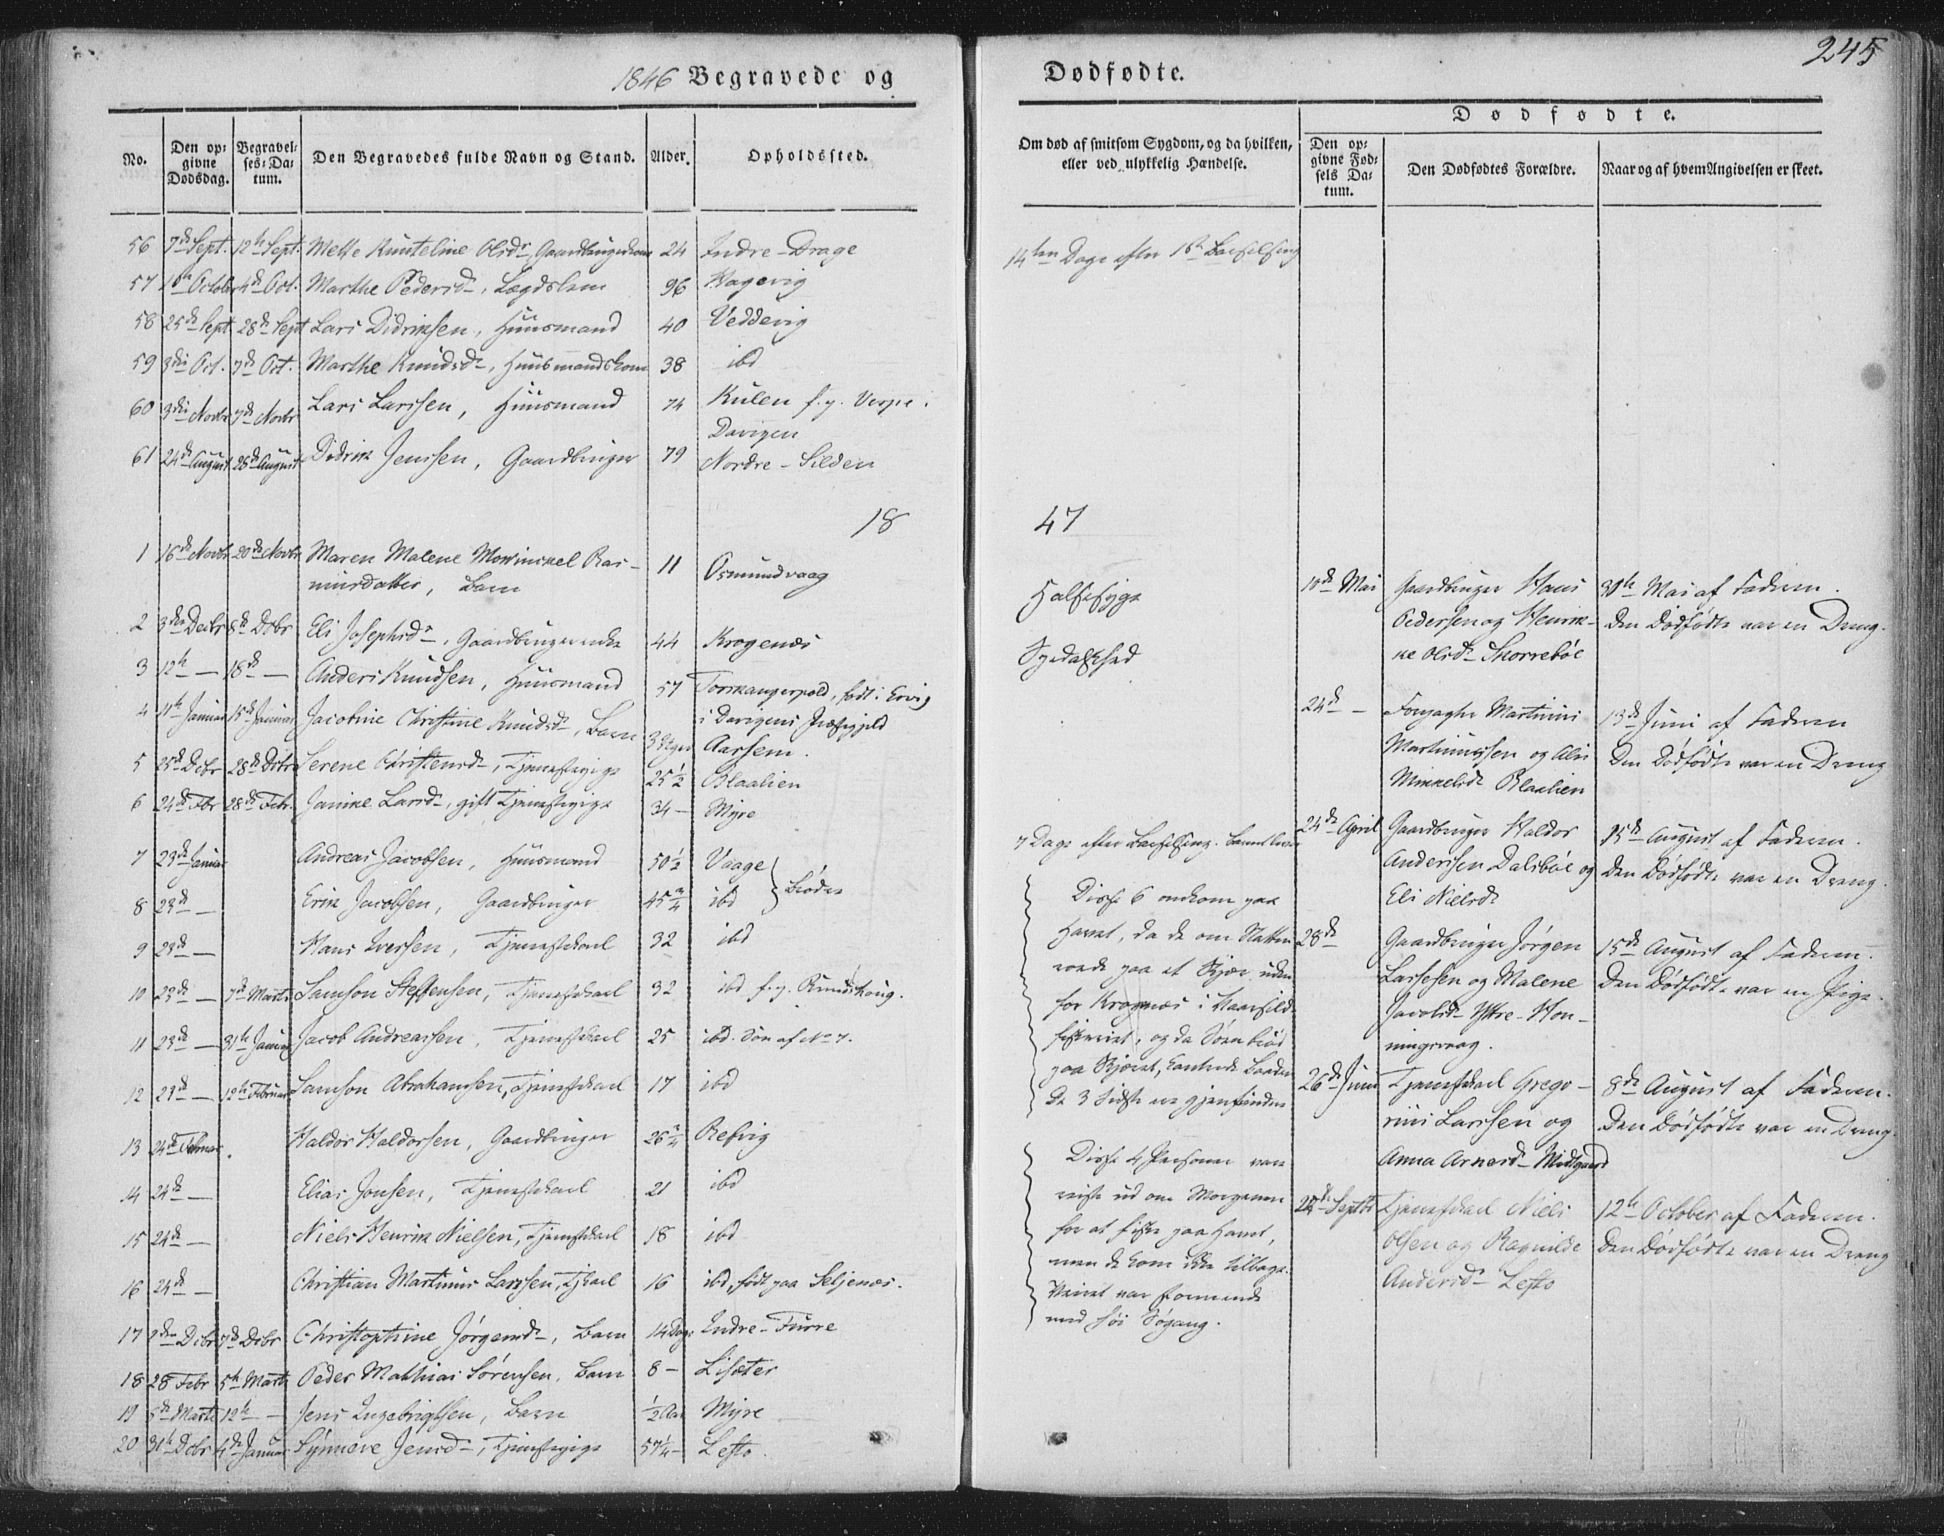 245
1846 Begravede og Dødfødte.
Dødfødte.
No.
Den opgivne Dødsdag.
Begravelses-Datum.
Den Begravedes fulde Navn og Stand.
Alder.
Opholdssted.
Om død af smitsom Sygdom, og da hvilken, eller ved ulykkelig Hændelse.
Den opgivne Fødsels Datum.
Den Dødfødtes Forældre.
Naar og af hvem Angivelsen er skeet.
56 7de Sept. 12te Sept. Mette Olsdr, Gaardbrugerkone 24 Indre-Drage
57 1ste October 4de Oct. Marthe Pedersdr, Lægdslem 96 Hagevig
58 25de Sept 28de Sept Lars Didriksen, Huusmand 40 Veddevig
59 3die Oct. 7de Oct. Marthe Knudsdr, Huusmandskone 38 ibd
60 3die Novbr 7de Novbr Lars Larssen, Huusmand 74 Kulen f. p.
Davigen
61 24de August 28de August Didrik Jenssen, Gaardbruger 79 Nordre-Silden
18 47
1 16de Novbr 20de Novbr Maren Malene Mowinckel Ras-
musdatter, Barn 11 Osmundvaag
2 3die Decbr 8de Dcbr Eli Josephsdr, Gaardbrugerenke 44 Krogenæs
3 12te — 18de — Anders Knudsen, Huusmand 57 født i Ervig
i Davigens Præstegjeld
4 11te Januar 15de Januar Jacobine Christine Knudsdr, Barn 3 Uger Aarsem.
5 25de Dcbr 28de Dcbr Serene Christensdr, Tjenestepige 25½ Blaalien
6 24de Fbr 28de Febr. Janike Larsdr, gift Tjenestepige 34 — Myre
7 23de Januar Andreas Jacobsen, Huusmand 50½ Vaage
Brødre
8 23de — Erik Jacobsen, Gaardbruger 45¾ ibd
9 23de — Hans Iversen, Tjenestekarl 32 ibd
10 23de — 7de Marts Samson Steffensen, Tjenestekarl 32 ibd f. p. Rundehoug.
11 23de — 31te Januar Jacob Andreassen, Tjenestekarl 25 ibd. Søn af No 7.
12 23de — 12te Februar Samson Abrahamsen, Tjenestekarl 17 ibd
13 24de Februar. Haldor Haldorsen, Gaardbruger 26¾ Refvig
14 24de — Elias Jonsen, Tjenestekarl 21 ibd
15 24de — Niels Henrik Nielsen, Tjenestekarl 18 ibd
16 24de — Christian Martinus Larssen, Tj.karl 16 ibd, født paa Seljenæs.
17 2den Dcbr 7de Dcbr Christophine Jørgensdr, Barn 14 Dage Indre-Furre
18 28 Febr 5te Marts Peder Mathias Sørensen, Barn 8 — Lisæter
19 5de Marts 12te — Jens Ingebrigtsen, Barn ½ Aar Myre
20 31te Dcbr 4de Januar Synneve Jensdr, Tjenestepige 57¼ — Lefto.
14ten Dage efter Barselseng
Halssyge
Spedalskhed
7 Dage efter Barselseng.
Disse 6 omkom paa
Havet, da de om Natten
roede paa et Skjær uden
for Krognæs i Vaarsild-
fiskeriet, og da Søen brød
paa Skjæret, kantrede Baaden
De 3 Sidste ere gjenfundne
Disse 4 Personer vare
reiste ud om Morgenen
for at fiske paa Havet,
men de kom ikke tilbage.
Veiret var
med høi Søgang.
10de Mai
Gaardbruger Hans
Pedersen og Henrik-
ke Olsdr Skorrebøe
30te Mai af Faderen.
Den Dødfødte var en Dreng.
24de —
Martinus
Martinussen og
Mikkelsdr Blaalien
13de Juni af Faderen
Den Dødfødte var en Dreng
24de April
Gaardbruger Haldor
Anderssen Dalsbøe og
Eli Nielsdr
15de August af Faderen.
Den Dødfødte var en Dreng.
28de
Gaardbruger Jørgen
Larssen og Malene
Jacobsdr Yttre-Hon-
ningsvaag.
15de August af Faderen.
Den Dødfødte var en Pige.
26de Juni
Tjenestekarl Grego-
rius Larssen og
Anna Arnesdr Midtgaard
8de August af Faderen.
Den Dødfødte var en Dreng.
24de Septbr
Tjenestekarl Niels
Olsen og Ragnilde
Andersdr Lefto
12te October af Faderen.
Den Dødfødte var en Dreng